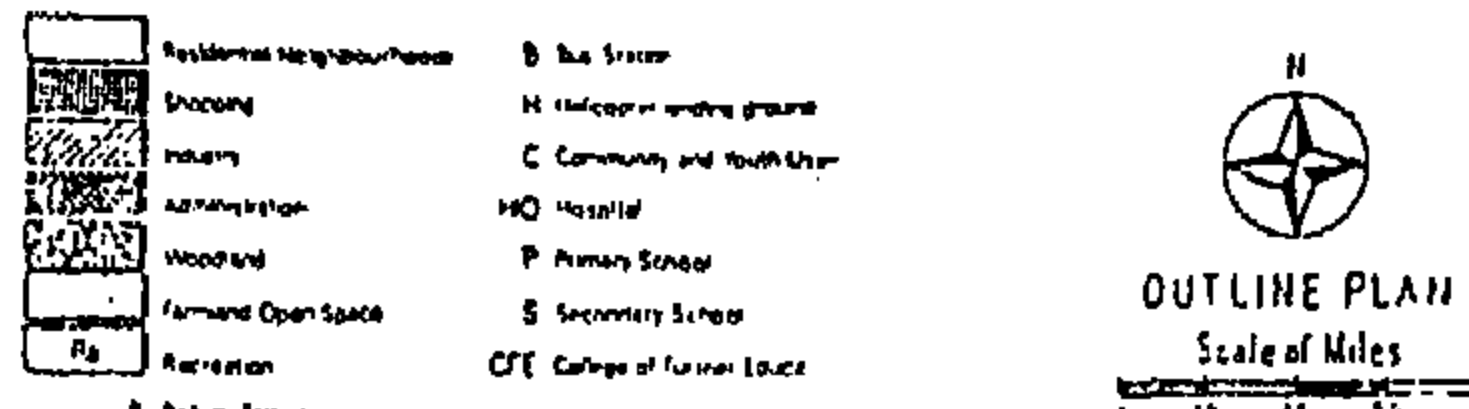 Residential Neighbourhoods
Shopping
Industry
Administration
Woodland
Farmland Open Space
Ra
Recreation
B Bus Station
H Helicopter landing ground
C Community and Youth
HO Hospital
P Primary School
S Secondary School
CFE College of Further Educ
N
OUTLINE PLAN
Scale of Miles